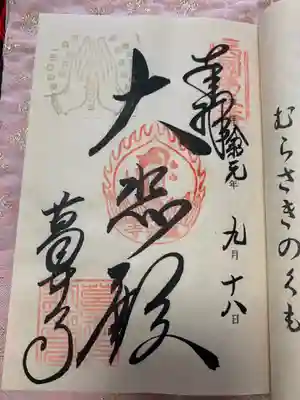 奉拝
令和元年
九月十八日
大悲殿
葛井寺
むらさきのくも